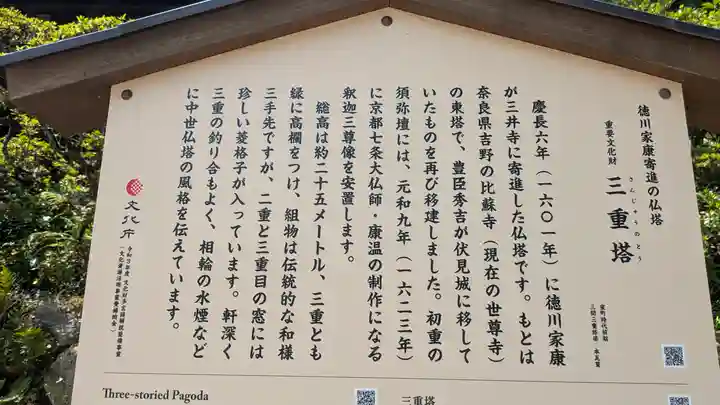 徳川家康寄進の仏塔
重要文化財
三重塔
さんじゅうのとう
室町時代初期
三間三重塔婆 本瓦葺
慶長六年（一六〇一年）に徳川家康
が三井寺に寄進した仏塔です。もとは
奈良県吉野の比蘇寺（現在の世尊寺）
の東塔で、豊臣秀吉が伏見城に移して
いたものを再び移建しました。初重の
須弥壇には、元和九年（一六二三年）
に京都七条大仏師・康温の制作になる
釈迦三尊像を安置します。
総高は約二十五メートル、三重とも
縁に高欄をつけ、組物は伝統的な和様
三手先ですが、二重と三重目の窓には
珍しい菱格子が入っています。軒深く
三重の釣り合もよく、相輪の水煙など
に中世仏塔の風格を伝えています。
文化庁
Three-storied Pagoda
三重塔